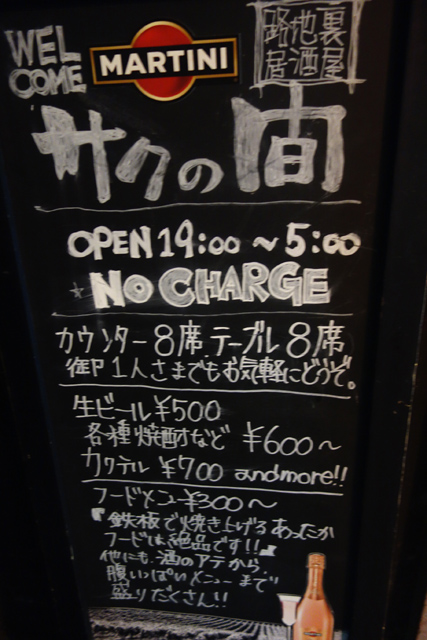 WEL
COME
MARTINI
路地裏
居酒屋
サクの間
OPEN 19:00 ~ 5:00
NO CHARGE
カウンター8席 テーブル8席
御1人さまでもお気軽にどうぞ。
生ビール ¥500
各種焼酎など ¥600~
カクテル ¥700 andmore!!
フードメニュー ¥300~
『鉄板で焼き上げるあったか
フードは絶品です!!』
他にも、酒のアテから、
腹いっぱいメニューまで
盛りたくさん!!